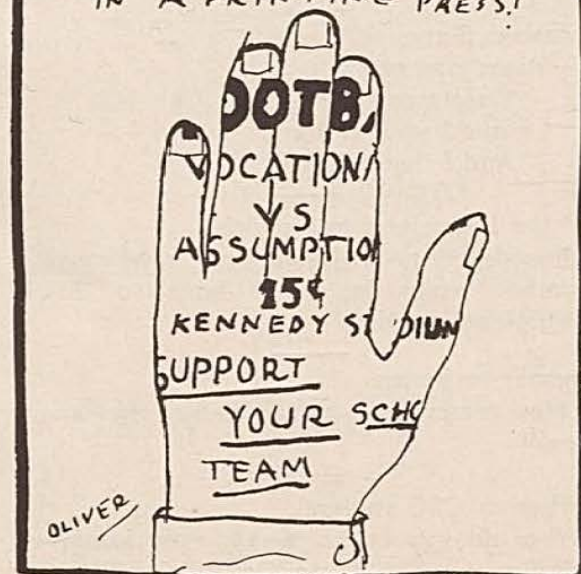 IN A PRINTING PRESS!
OOTB
VOCATION
VS
ASSUMPTIO
15¢
KENNEDY ST DIUM
SUPPORT
YOUR SCHO
TEAM
OLIVER